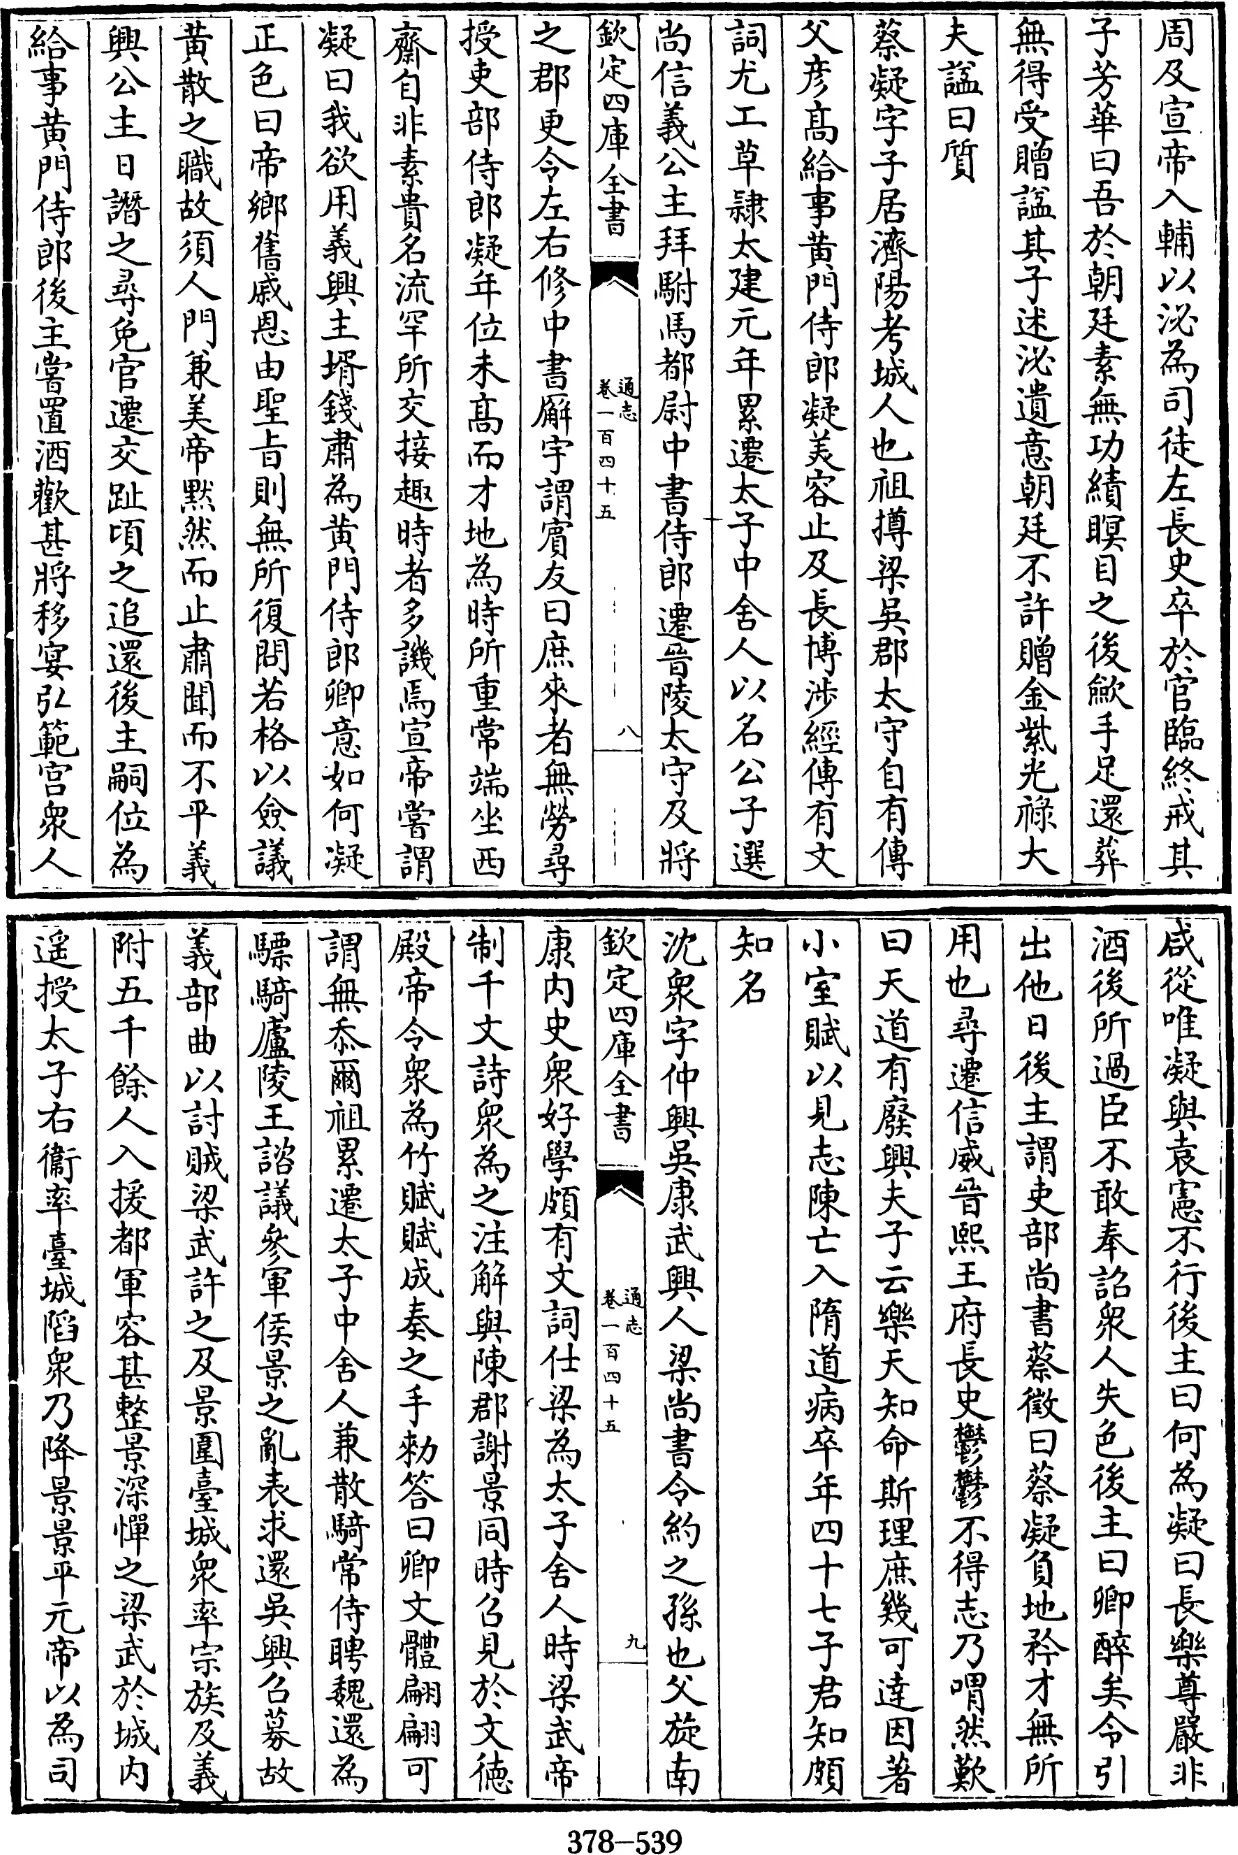 周及宣帝入輔以泌為司徒左長史卒於官臨終戒其
子芳華曰吾於朝廷素無功績瞑目之後斂手足還葬
無得受贈諡其子述泌遺意朝廷不許贈金紫光祿大
夫諡曰質
蔡凝字子居濟陽考城人也祖撙梁吳郡太守自有傳
父彥髙給事黄門侍郎凝美容止及長博涉經傳有文
詞尤工草隸太建元年累遷太子中舍人以名公子選
尚信義公主拜駙馬都尉中書侍郎遷晉陵太守及將
欽定四庫全書
通志
卷一百四十五
八
之郡更令左右修中書廨宇謂賔友曰庶來者無勞尋
授吏部侍郎凝年位未髙而才地為時所重常端坐西
齋自非素貴名流罕所交接趣時者多譏焉宣帝嘗謂
凝曰我欲用義興主壻錢肅為黄門侍郎卿意如何凝
正色曰帝鄉舊戚恩由聖㫖則無所復問若格以僉議
黄散之職故須人門兼美帝黙然而止肅聞而不平義
興公主日譖之尋免官遷交趾頃之追還後主嗣位為
給事黄門侍郎後主嘗置酒歡甚將移宴引範宫衆人
咸從唯凝與袁憲不行後主曰何為凝曰長樂尊嚴非
酒後所過臣不敢奉詔衆人失色後主曰卿醉矣令引
出他日後主謂吏部尚書蔡徵曰蔡凝負地矜才無所
用也尋遷信威晉熙王府長史鬱鬱不得志乃喟然歎
曰天道有廢興夫子云樂天知命斯理庶幾可達因著
小室賦以見志陳亡入隋道病卒年四十七子君知頗
知名
沈衆字仲興吳康武興人梁尚書令約之孫也父旋南
欽定四庫全書
通志
卷一百四十五
九
康内史衆好學頗有文詞仕梁為太子舍人時梁武帝
制千文詩衆為之注解與陳郡謝景同時召見於文徳
殿帝令衆為竹賦賦成奏之手勅答曰卿文體翩翩可
謂無忝爾祖累遷太子中舍人兼散騎常侍聘魏還為
驃騎廬陵王諮議參軍侯景之亂表求還吳興召募故
義部曲以討賊梁武許之及景圍臺城衆率宗族及義
附五千餘人入援都軍容甚整景深憚之梁武於城内
遥授太子右衞率臺城䧟衆乃降景景平元帝以為司
378-539